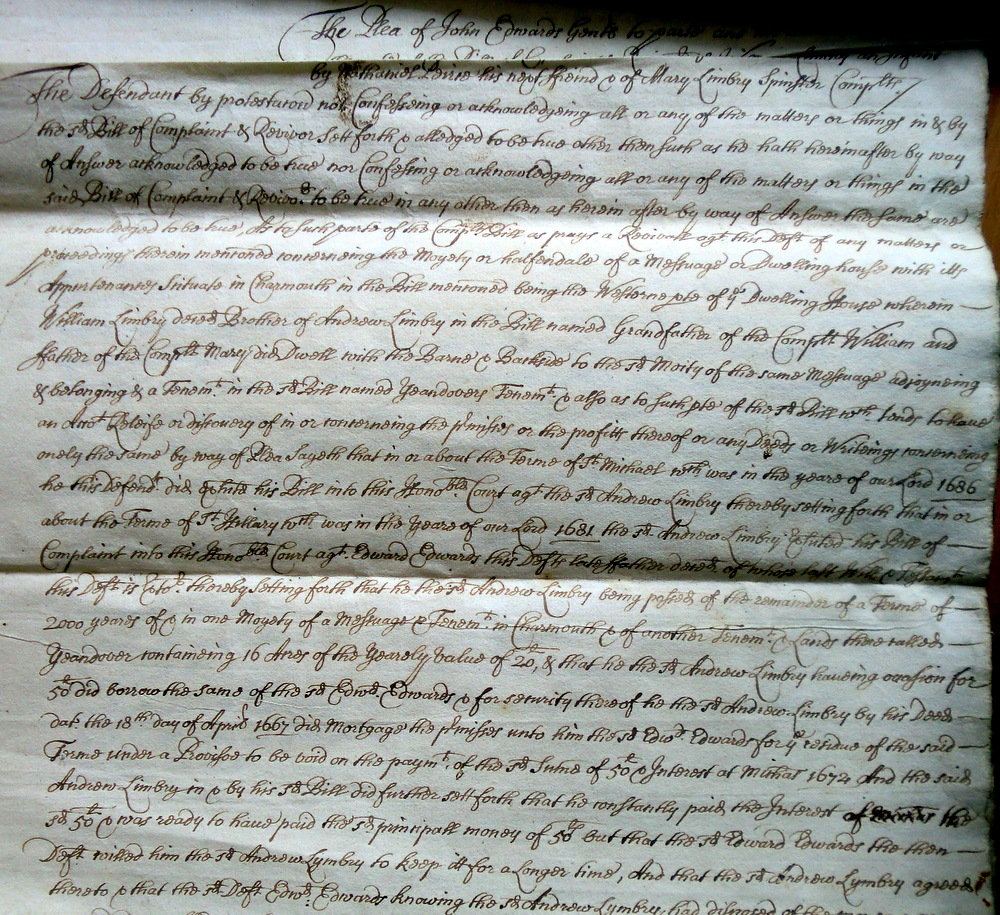 The Plea of John Edwards Gent to parte and
by Nathaniel Peirie his next freind & of Mary Limbry Spinster Complts.
The Defendant by protestacon not Confesseing or acknowledgeing all or any of the matters or things in & by
the sd Bill of Complaint & Revivor sett forth & alledged to be true other then such as he hath hereinafter by way
of Answer acknowledged to be true nor Confessing or acknowledgeing all or any of the matters or things in the
said Bill of Complaint & Revivor to be true in any other then as herein after by way of Answer the same are
acknowledged to be true, As to such parte of the Complts Bill as prays a Revivall agt this Deft of any matters or
proceedings therein mentioned concerneing the Moyety or halfendale of a Messuage or Dwelling house with itts
Appurtenances Scituate in Charmouth in the Bill mentioned being the Westerne pte of ye Dwelling House wherein
William Limbry deced Brother of Andrew Limbry in the Bill named Grandfather of the Complt William and
ffather of the Complt Mary did Dwell with the Barne & Backside to the sd Moity of the same Messuage adjoyneing
& belonging & a Tenemt in the sd Bill named Yeandovers Tenemt & also as to such pte of the sd Bill wch tends to have
an Acct Releife or discovery of in or concerneing the pmisses or the profitts thereof or any Deeds or Writeings concerneing
onely the same by way of Plea Sayeth that in or about the Terme of St Michael wch was in the yeare of our Lord 1686
he this Defendt did exhite his Bill into this Honoble Court agt the sd Andrew Limbry thereby setting forth that in or
about the Terme of St Hillary wch was in the Yeare of our Lord 1681 the sd Andrew Limbry exhited his Bill of
Complaint into this Honoble Court agt Edward Edwards this Defts late ffather deced of whose last Will & Testamt
this Deft is Extor thereby Setting forth that he the sd Andrew Limbry being possed of the remainder of a Terme of
2000 yeares of & in one Moyety of a Messuage & Tenemt in Charmouth & of another Tenemt & Lands there called
Yeandover containeing 16 Acres of the Yearely value of 20l, & that he the sd Andrew Limbry haveing occasion for
50l did borrow the same of the sd Edwd Edwards & for security thereof he the sd Andrew Limbry by his Deed
dat the 18th day of Aprill 1667 did Mortgage the pmisses unto him the sd Edwd Edwards for ye residue of the said
Terme under a Provisoe to be void on the paymt of the sd Sume of 50l & Interest at Michas 1674 And the said
Andrew Limbry in & by his sd Bill did further sett forth that he constantly paid the Interest of the
sd 50l & was ready to have paid the sd principall money of 50l but that the sd Edward Edwards the then
Deft willed him the sd Andrew Lymbry to keep itt for a Longer time, And that the sd Andrew Lymbry agreed
thereto & that the sd Deft Edwd Edwards knowing the sd Andrew Limbry had disposed of the